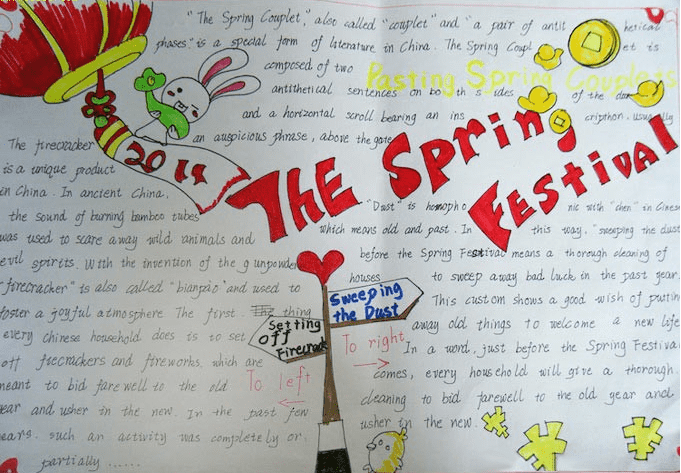 "The Spring Couplet," aloe called "couplet" and "a pair of antit hetical
phases." is a special form of literature in China. The Spring Coupl et is
composed of two
Pasting Spring Couplets
antithetical sentences on bo th s ides of the
and a horizontal scroll bearing an ins cription, usually
an auspicious phrase, above the gate
2011
THE Spring
FEStival
The firecracker
is a unique product
en China. In ancient China,
the sound of burning bamboo tubes
was used to scare away wild animals and
evil spirits. With the invention of the gunpowder
"firecracker" is also called "bianpao" and used to
foster a joyful atmosphere. The first thing
every chinese household does is to set
off firecrackers and fireworks, which are
meant to bid fare well to the old
ear and usher in the new. In the past few
ears. such an activity was completely or
partially ......
Setting
off
Firecrack
To left
Sweeping
the Dust
To right
"Dust" is homopho nic with "chen" in Cinese
which means old and past. In this way, "sweeping the dust
before the Spring Festival means a thorough cleaning of
houses to sweep away bad luck in the past year.
This custom shows a good wish of puttin
away old things to welcome a new life
In a word, just before the Spring Festiva
comes, every house hold will give a thorough.
cleaning to bid farewell to the old year and
usher in the new.